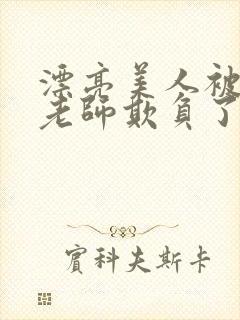 漂亮美人被
老師欺負了
賓科夫斯卡